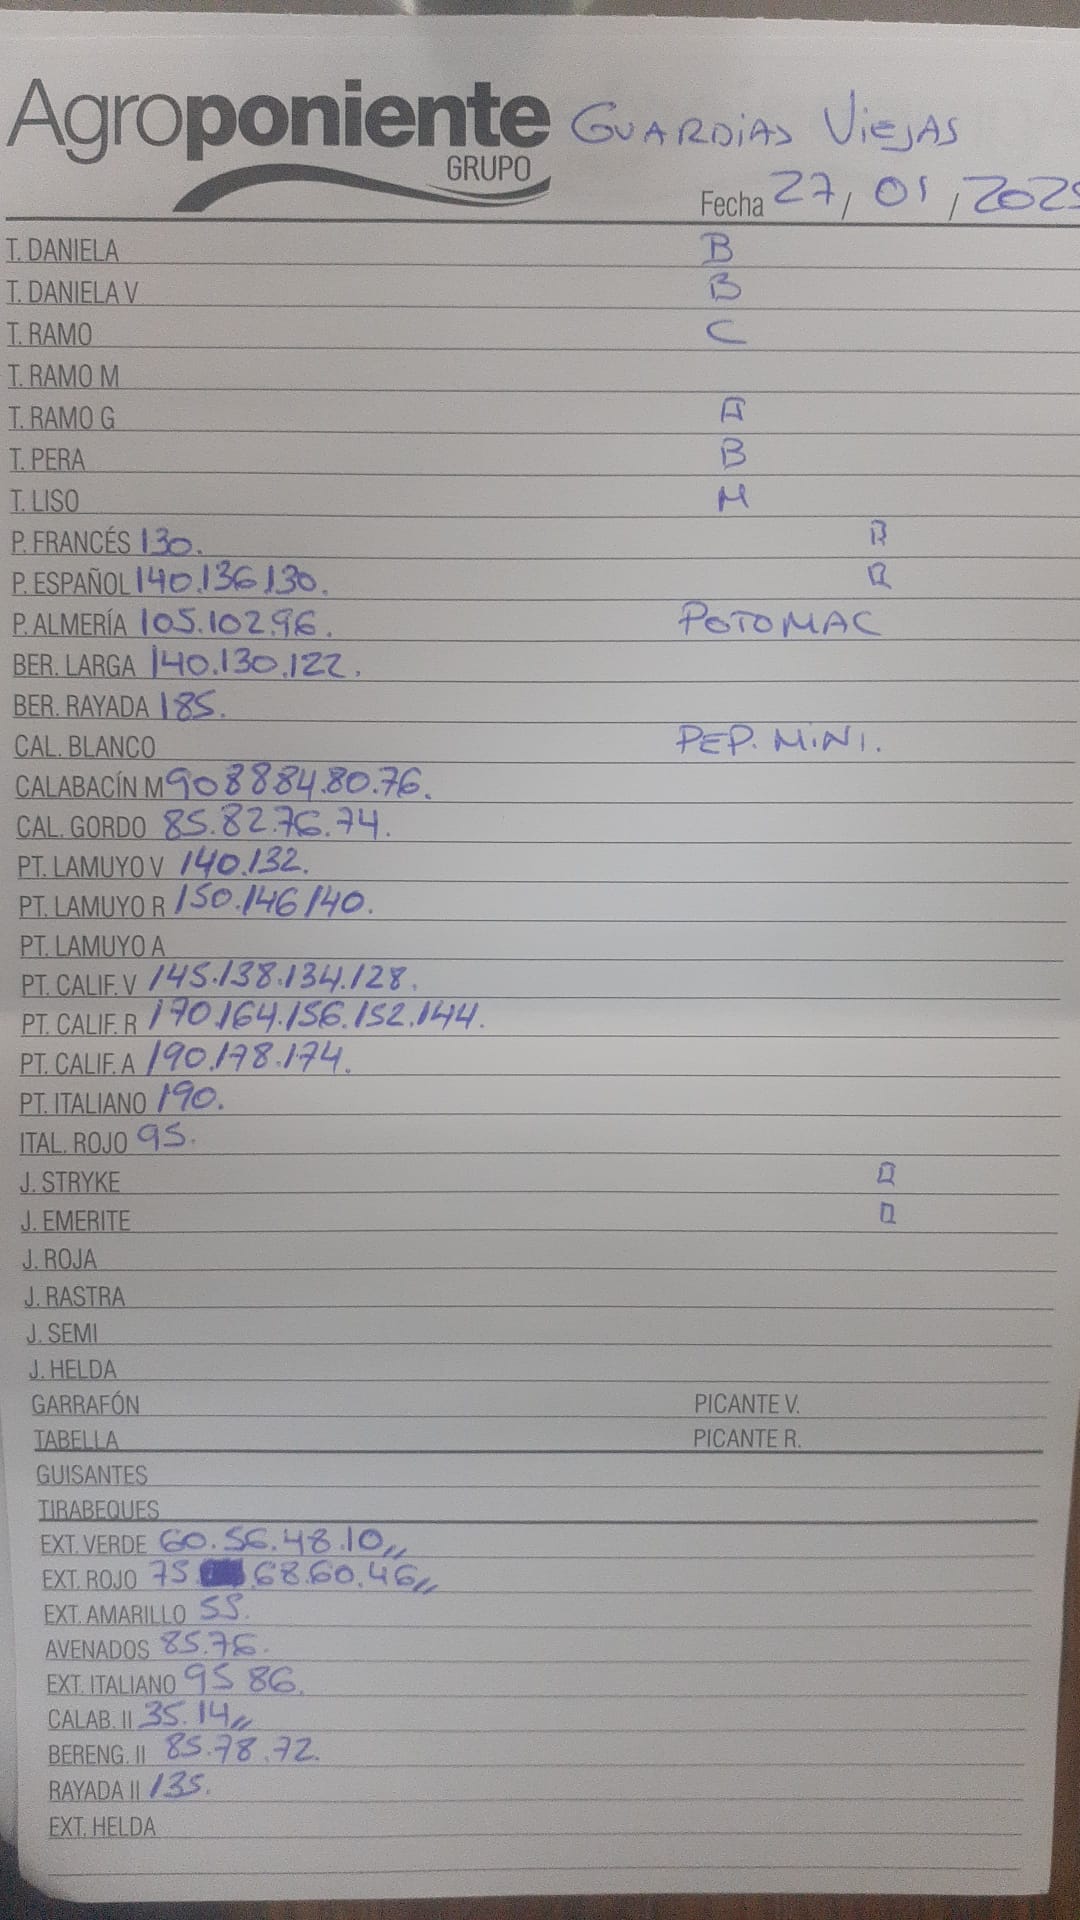 Agroponiente GUARDIAS VIEJAS
GRUPO
Fecha 27/01/2025
T. DANIELA B
T. DANIELA V B
T. RAMO C
T. RAMO M
T. RAMO G A
T. PERA B
T. LISO M
P. FRANCÉS 130.
P. ESPAÑOL 140.136.130.
P. ALMERÍA 105.102.96. POTOMAC
BER. LARGA 140.130.122.
BER. RAYADA 185.
CAL. BLANCO PEP. MINI.
CALABACÍN M 90 88 84.80.76.
CAL. GORDO 85.82.76.74.
PT. LAMUYO V 140.132.
PT. LAMUYO R 150.146 140.
PT. LAMUYO A
PT. CALIF. V 145.138.134.128.
PT. CALIF. R 170.164.156.152.144.
PT. CALIF. A 190.178.174.
PT. ITALIANO 190.
ITAL. ROJO 95.
J. STRYKE
J. EMERITE
J. ROJA
J. RASTRA
J. SEMI
J. HELDA
GARRAFÓN PICANTE V.
TABELLA PICANTE R.
GUISANTES
TIRABEQUES
EXT. VERDE 60.56.48.10,,
EXT. ROJO 75. 68.60.46,,
EXT. AMARILLO 55.
AVENADOS 85.76.
EXT. ITALIANO 95 86.
CALAB. II 35.14,,
BERENG. II 85.78.72.
RAYADA II 135.
EXT. HELDA